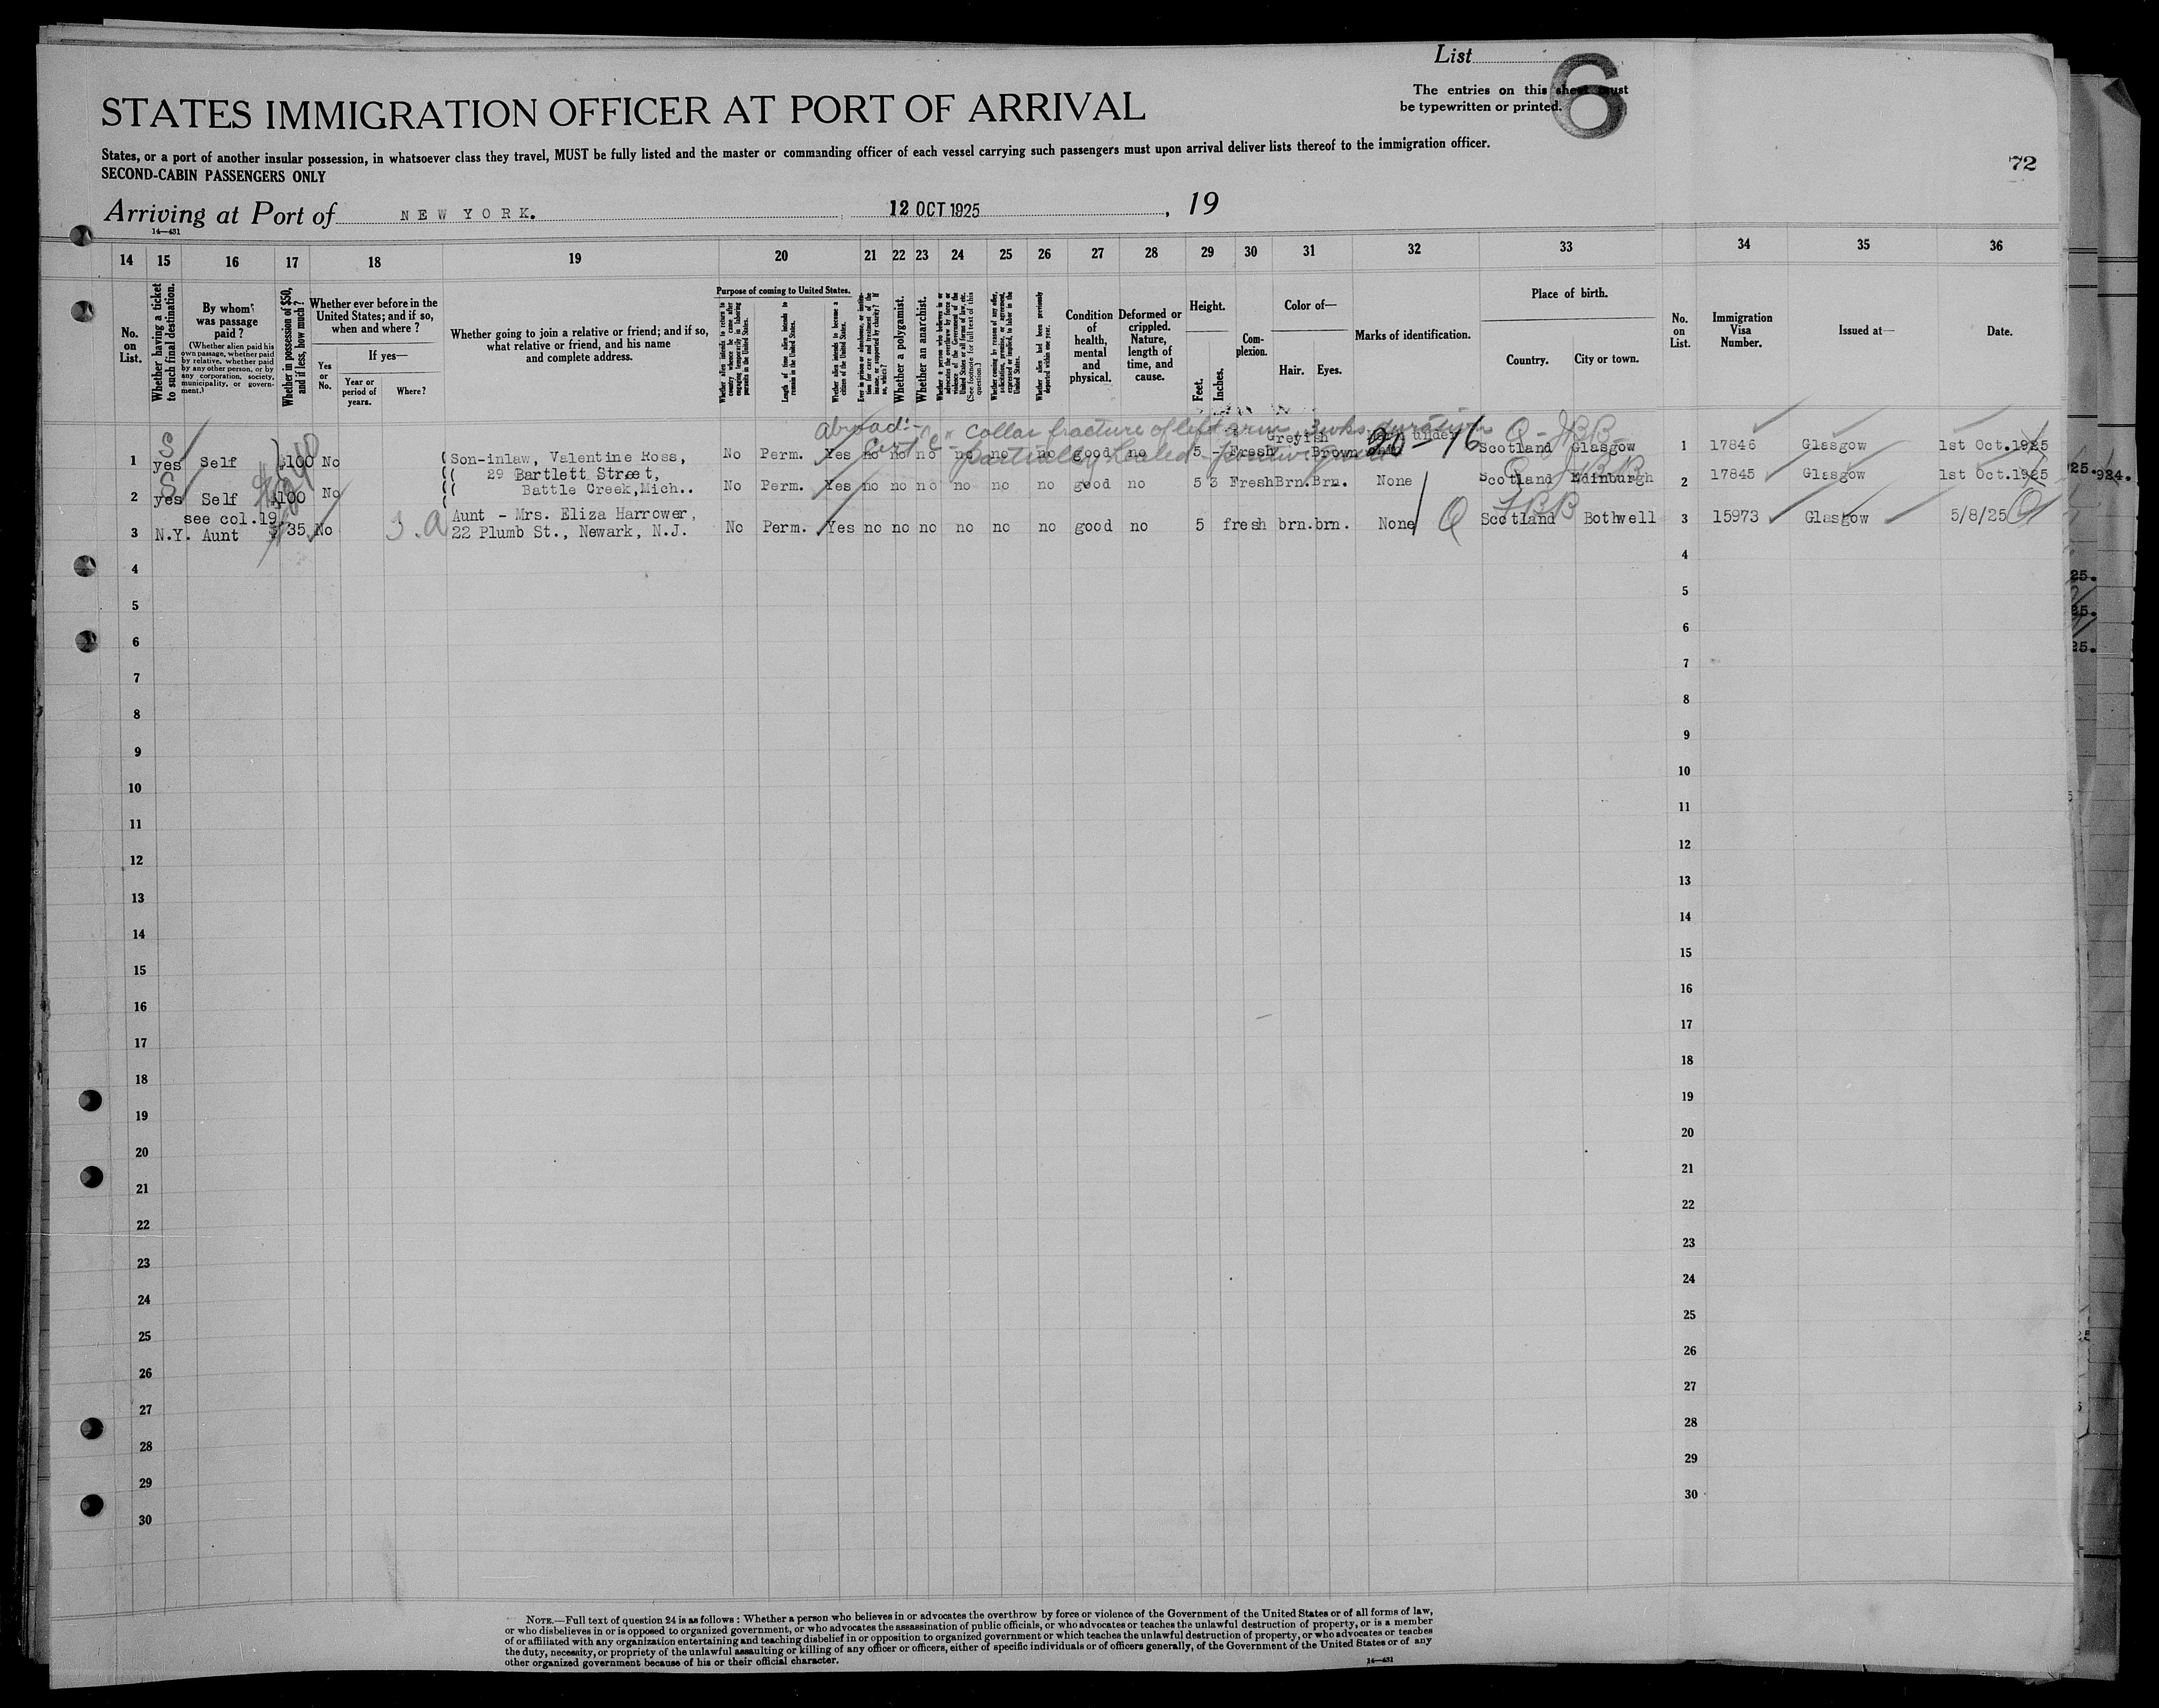 List
6
The entries on this sheet must
be typewritten or printed.
STATES IMMIGRATION OFFICER AT PORT OF ARRIVAL
States, or a port of another insular possession, in whatsoever class they travel, MUST be fully listed and the master or commanding officer of each vessel carrying such passengers must upon arrival deliver lists thereof to the immigration officer.
SECOND-CABIN PASSENGERS ONLY
72
Arriving at Port of NEW YORK. 12 OCT 1925, 19
14—431
14 15 16 17 18 19 20 21 22 23 24 25 26 27 28 29 30 31 32 33 34 35 36
No. on List.
Whether having a ticket to such final destination.
By whom was passage paid?
(Whether alien paid his own passage, whether paid by relative, whether paid by any other person, or by any corporation, society, municipality, or government.)
Whether in possession of $50, and if less, how much?
Whether ever before in the United States; and if so, when and where?
Yes or No.
If yes—
Year or period of years.
Where?
Whether going to join a relative or friend; and if so, what relative or friend, and his name and complete address.
Purpose of coming to United States.
Whether alien intends to return to country whence he came after engaging temporarily in laboring pursuits in the United States.
Length of time alien intends to remain in the United States.
Whether alien intends to become a citizen of the United States.
Ever in prison or almshouse, or institution for care and treatment of the insane, or supported by charity? If so, which?
Whether a polygamist.
Whether an anarchist.
Whether a person who believes in or advocates the overthrow by force or violence of the Government of the United States or all forms of law, etc. (See footnote for full text of this question.)
Whether coming by reason of any offer, solicitation, promise, or agreement, expressed or implied, to labor in the United States.
Whether alien had been previously deported within one year.
Condition of health, mental and physical.
Deformed or crippled. Nature, length of time, and cause.
Height.
Feet.
Inches.
Complexion.
Color of—
Hair.
Eyes.
Marks of identification.
Place of birth.
Country.
City or town.
No. on List.
Immigration Visa Number.
Issued at—
Date.
abroad:-
collar fracture of left arm, 3 wks. duration
partially healed
1 S yes Self $100 No Son-inlaw, Valentine Ross, No Perm. Yes no no no no no no good no 5 - Fresh Greyish Brown under 20-16 Scotland Glasgow 1 17846 Glasgow 1st Oct.1925
29 Bartlett Street,
2 S yes Self $100 No Battle Creek,Mich.. No Perm. Yes no no no no no no good no 5 3 Fresh Brn. Brn. None Scotland Edinburgh 2 17845 Glasgow 1st Oct.1925
see col.19
Aunt - Mrs. Eliza Harrower,
3 N.Y. Aunt $35 No 22 Plumb St., Newark, N.J. No Perm. Yes no no no no no no good no 5 fresh brn. brn. None Q Scotland Bothwell 3 15973 Glasgow 5/8/25
4 4
5 5
6 6
7 7
8 8
9 9
10 10
11 11
12 12
13 13
14 14
15 15
16 16
17 17
18 18
19 19
20 20
21 21
22 22
23 23
24 24
25 25
26 26
27 27
28 28
29 29
30 30
NOTE.—Full text of question 24 is as follows: Whether a person who believes in or advocates the overthrow by force or violence of the Government of the United States or of all forms of law,
or who disbelieves in or is opposed to organized government, or who advocates the assassination of public officials, or who advocates or teaches the unlawful destruction of property, or is a member
of or affiliated with any organization entertaining and teaching disbelief in or opposition to organized government or which teaches the unlawful destruction of property, or who advocates or teaches
the duty, necessity, or propriety of the unlawful assaulting or killing of any officer or officers, either of specific individuals or of officers generally, of the Government of the United States or of any
other organized government because of his or their official character.
14—431